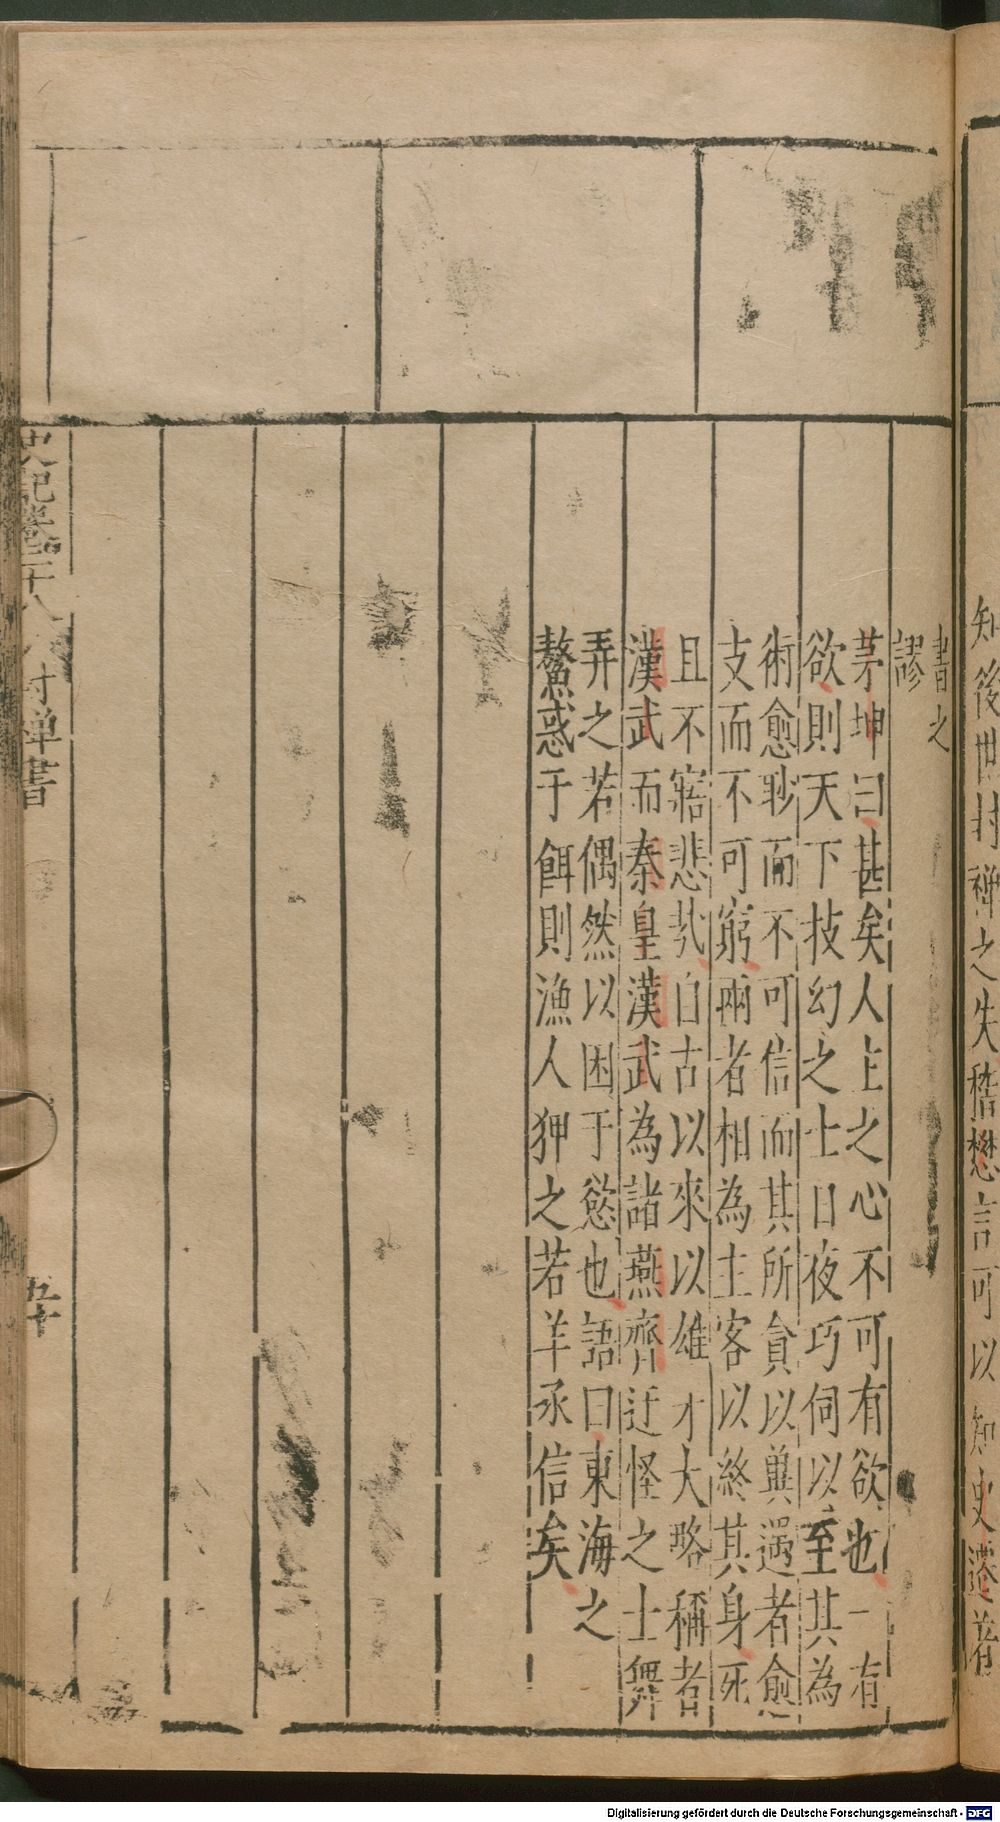 知後世封禪之失稽懋言可以知史遷著
書之
謬
茅坤曰甚矣人主之心不可有欲也一有
欲則天下技幻之士日夜巧伺以至其為
術愈眇而不可信而其所貪以兾遇者愈
支而不可窮兩者相為主客以終其身死
且不寤悲㢤自古以來以雄才大略稱者
漢武而秦皇漢武為諸燕齊迂怪之士舞
弄之若偶然以困于慾也語曰東海之
鰲惑于餌則漁人狎之若羊豕信矣
史記卷二十八 封禪書
五十
Digitalisierung gefördert durch die Deutsche Forschungsgemeinschaft - DFG